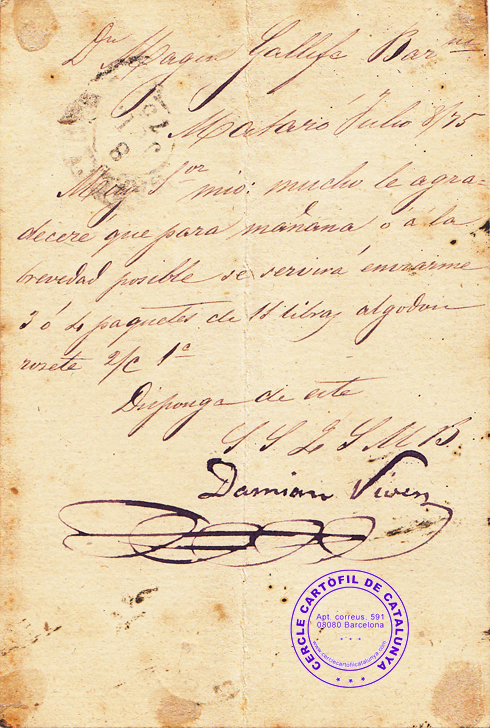 Dn Magin Gallifa Barna
Mataró Julio 8/75
Muy Sor mio: mucho le agra-
deceré que para mañana o á la
brevedad posible se servirá enviarme
3 ó 4 paquetes de 11 libras algodon
2/c 1a
Disponga de este
S S Q S M B.
Damian Viven
CERCLE CARTÒFIL DE CATALUNYA
Apt. correus. 591
08080 Barcelona
www.cerclecartofilcatalunya.com